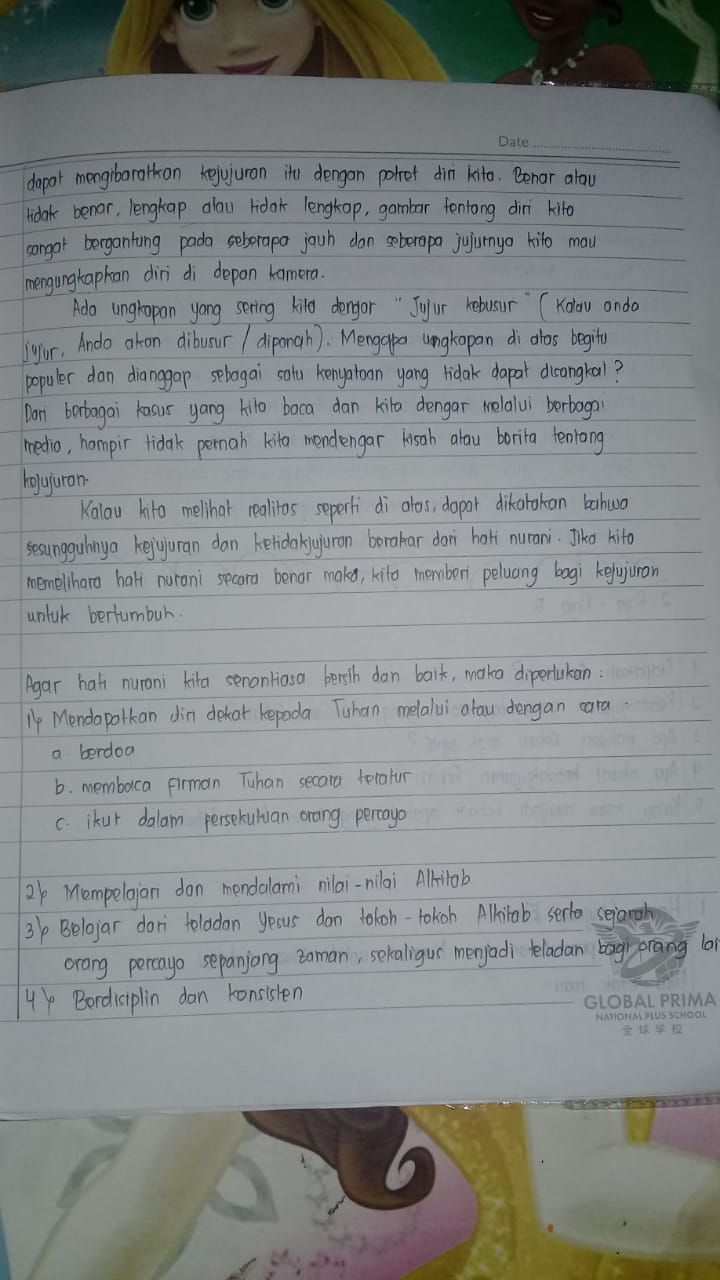 Date
dapat mengibaratkan kejujuran itu dengan potret diri kita. Benar atau
tidak benar, lengkap atau tidak lengkap, gambar tentang diri kita
sangat bergantung pada seberapa jauh dan seberapa jujurnya kita mau
mengungkapkan diri di depan kamera.
Ada ungkapan yang sering kita dengar "Jujur kebusur" (Kalau anda
jujur, Anda akan dibusur / dipanah). Mengapa ungkapan di atas begitu
populer dan dianggap sebagai satu kenyataan yang tidak dapat disangkal?
Dari berbagai kasus yang kita baca dan kita dengar melalui berbagai
media, hampir tidak pernah kita mendengar kisah atau berita tentang
kejujuran.
Kalau kita melihat realitas seperti di atas, dapat dikatakan bahwa
sesungguhnya kejujuran dan ketidakjujuran berakar dari hati nurani. Jika kita
memelihara hati nurani secara benar maka, kita memberi peluang bagi kejujuran
untuk bertumbuh.
Agar hati nurani kita senantiasa bersih dan baik, maka diperlukan :
1) Mendapatkan diri dekat kepada Tuhan melalui atau dengan cara :
a. berdoa
b. membaca firman Tuhan secara teratur
c. ikut dalam persekutuan orang percaya
2) Mempelajari dan mendalami nilai-nilai Alkitab
3) Belajar dari teladan Yesus dan tokoh-tokoh Alkitab serta sejarah
orang percaya sepanjang zaman, sekaligus menjadi teladan bagi orang lai
4) Berdisiplin dan konsisten
GLOBAL PRIMA
NATIONAL PLUS SCHOOL
全球学校